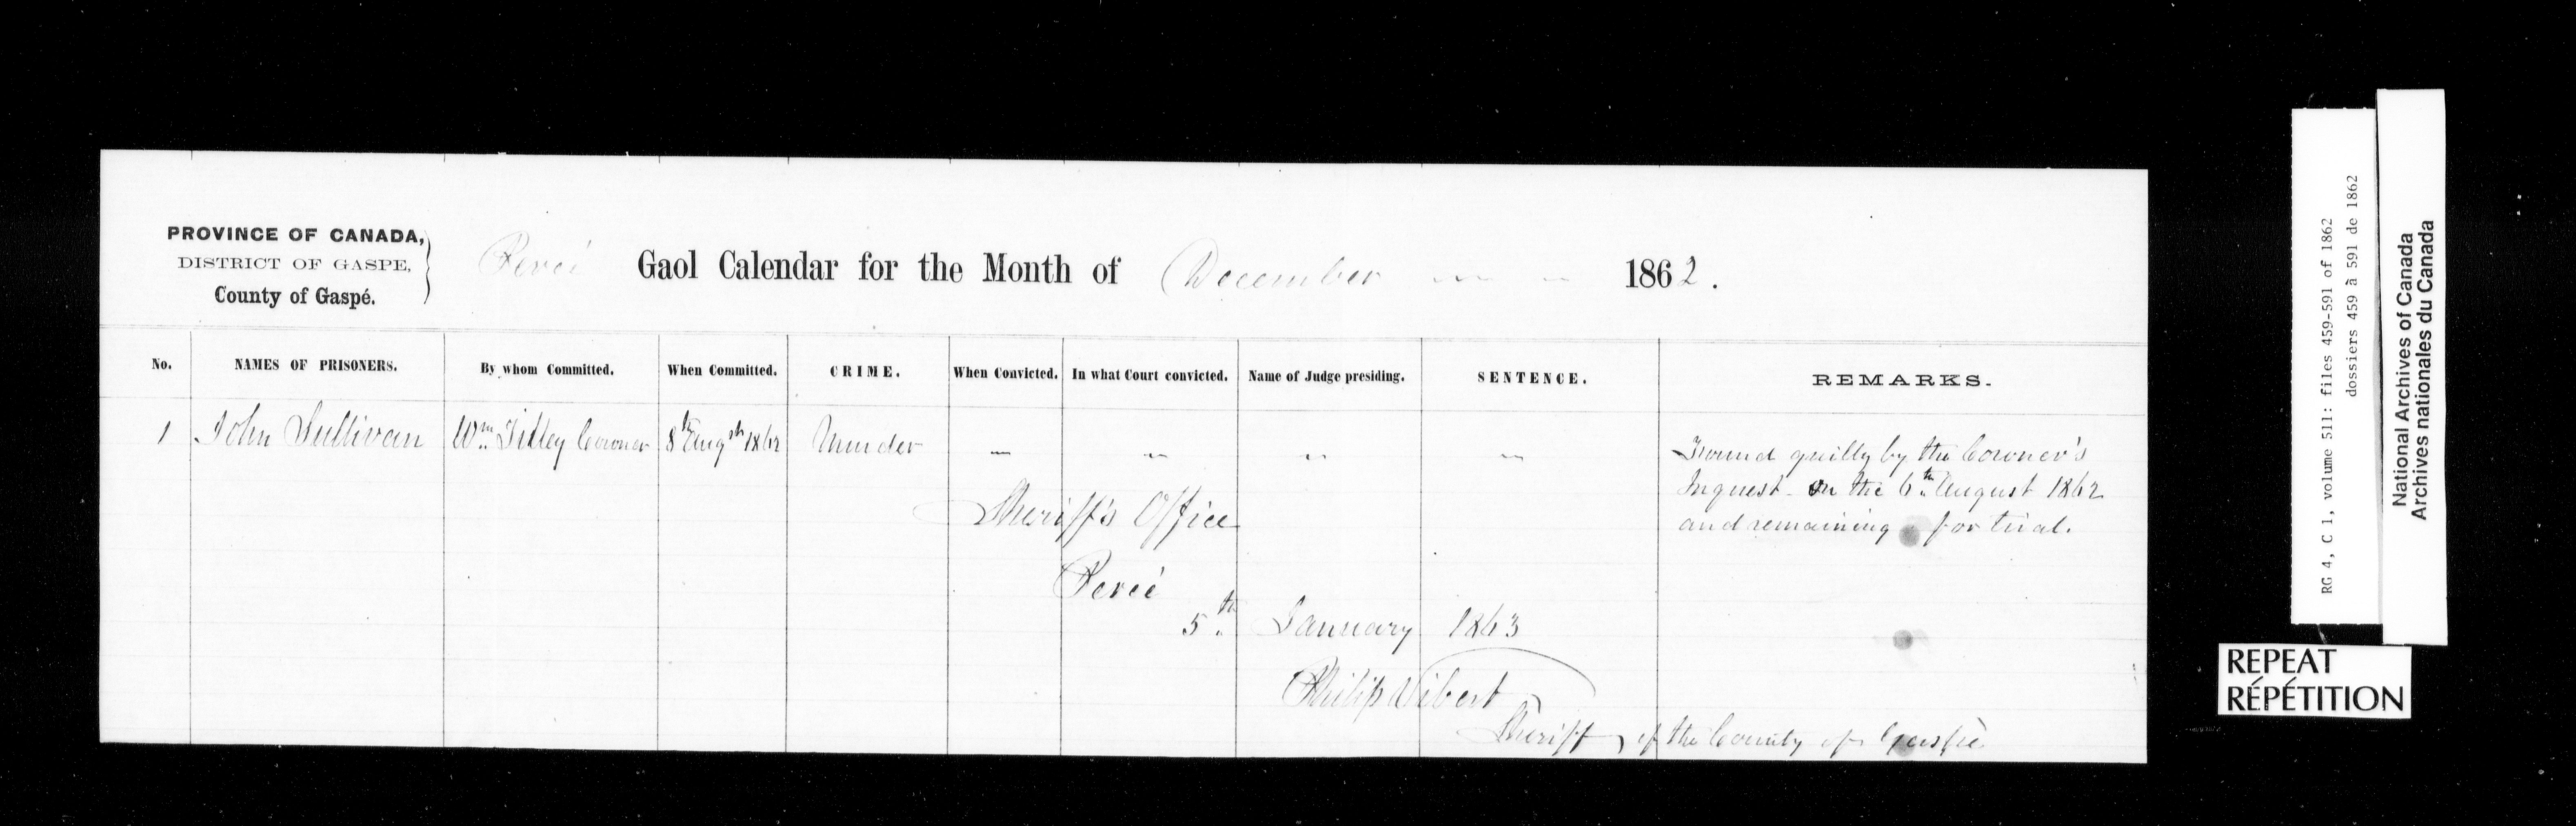 PROVINCE OF CANADA,
DISTRICT OF GASPE,
County of Gaspé.
Percé Gaol Calendar for the Month of December 1862.
No. NAMES OF PRISONERS. By whom Committed. When Committed. CRIME. When Convicted. In what Court convicted. Name of Judge presiding. SENTENCE. REMARKS.
1 John Sullivan Wm. Tilley Coroner 8th Augst 1862 Murder " " " " Found guilty by the Coroner's
Inquest on the 6th August 1862
and remaining for trial.
Sheriff's Office
Percé
5th January 1863
Philip Vibert
Sheriff of the County of Gaspé
RG 4, C 1, volume 511: files 459-591 of 1862
dossiers 459 à 591 de 1862
National Archives of Canada
Archives nationales du Canada
REPEAT
RÉPÉTITION